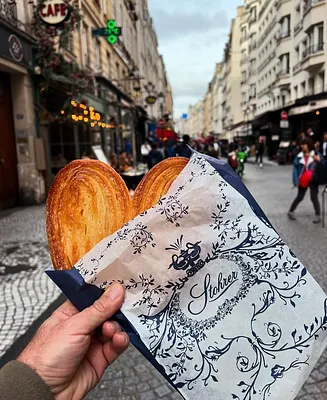 CAFE
Stohrer